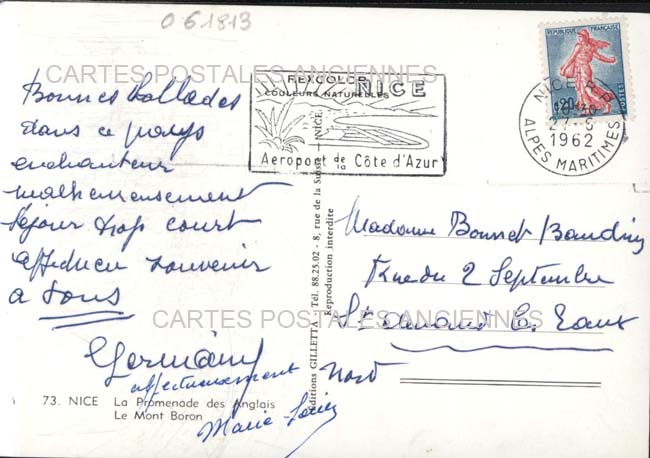 061813
CARTES POSTALES ANCIENNES
REXCOLOR
COULEURS NATURELLES
NICE
Aéroport de la Côte d'Azur
REPUBLIQUE FRANÇAISE
0,20
POSTES
NICE R.P.
1962
ALPES MARITIMES
Bonnes Ballades
dans ce pays
enchanteur
malheureusement
Séjour trop court
affectueux souvenir
a Tous
Germaine
affectueusement
Marie
73. NICE La Promenade des Anglais
Le Mont Boron
Editions GILLETTA - Tél. 88.25.02 - 8, rue de la Suisse - NICE
Reproduction interdite
Madame Bonnet
Rue du 2 Septembre
St Amand L. Eaux
Nord
CARTES POSTALES ANCIENNES